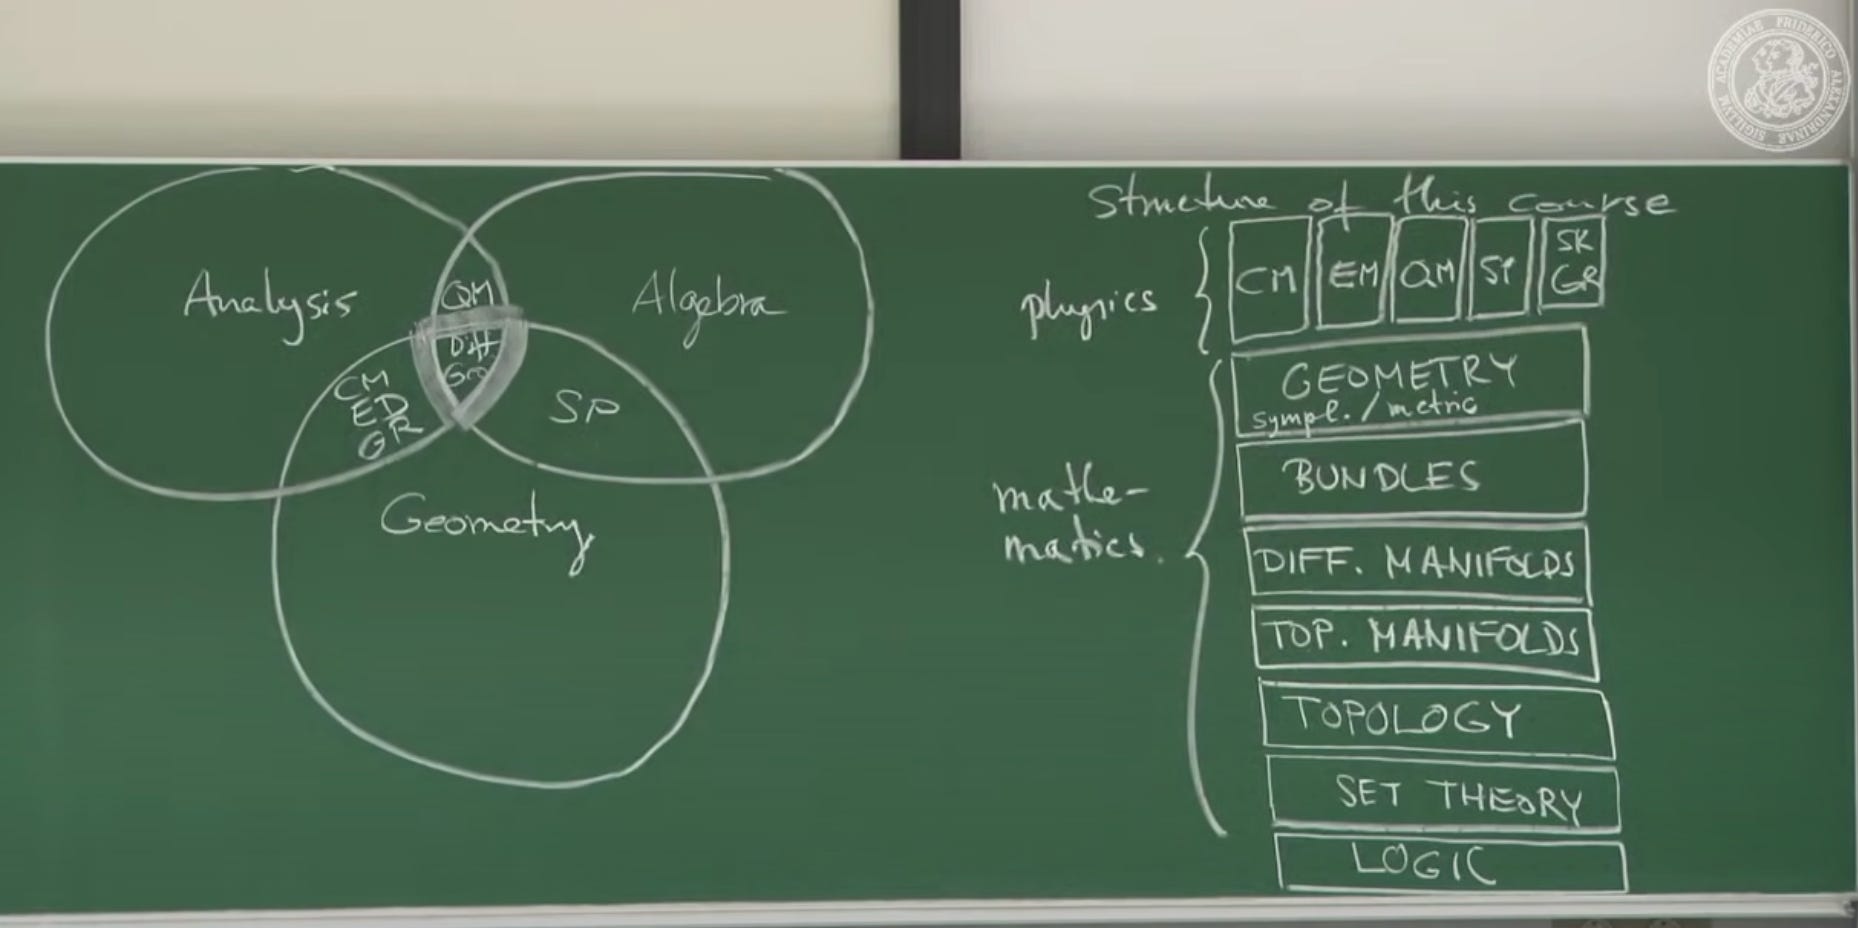 Analysis
Algebra
QM
Diff
Geo
CM
ED
GR
SP
Geometry
Structure of this course
physics
CM
EM
QM
SP
SR
GR
mathe-
matics.
GEOMETRY
sympl. / metric
BUNDLES
DIFF. MANIFOLDS
TOP. MANIFOLDS
TOPOLOGY
SET THEORY
LOGIC